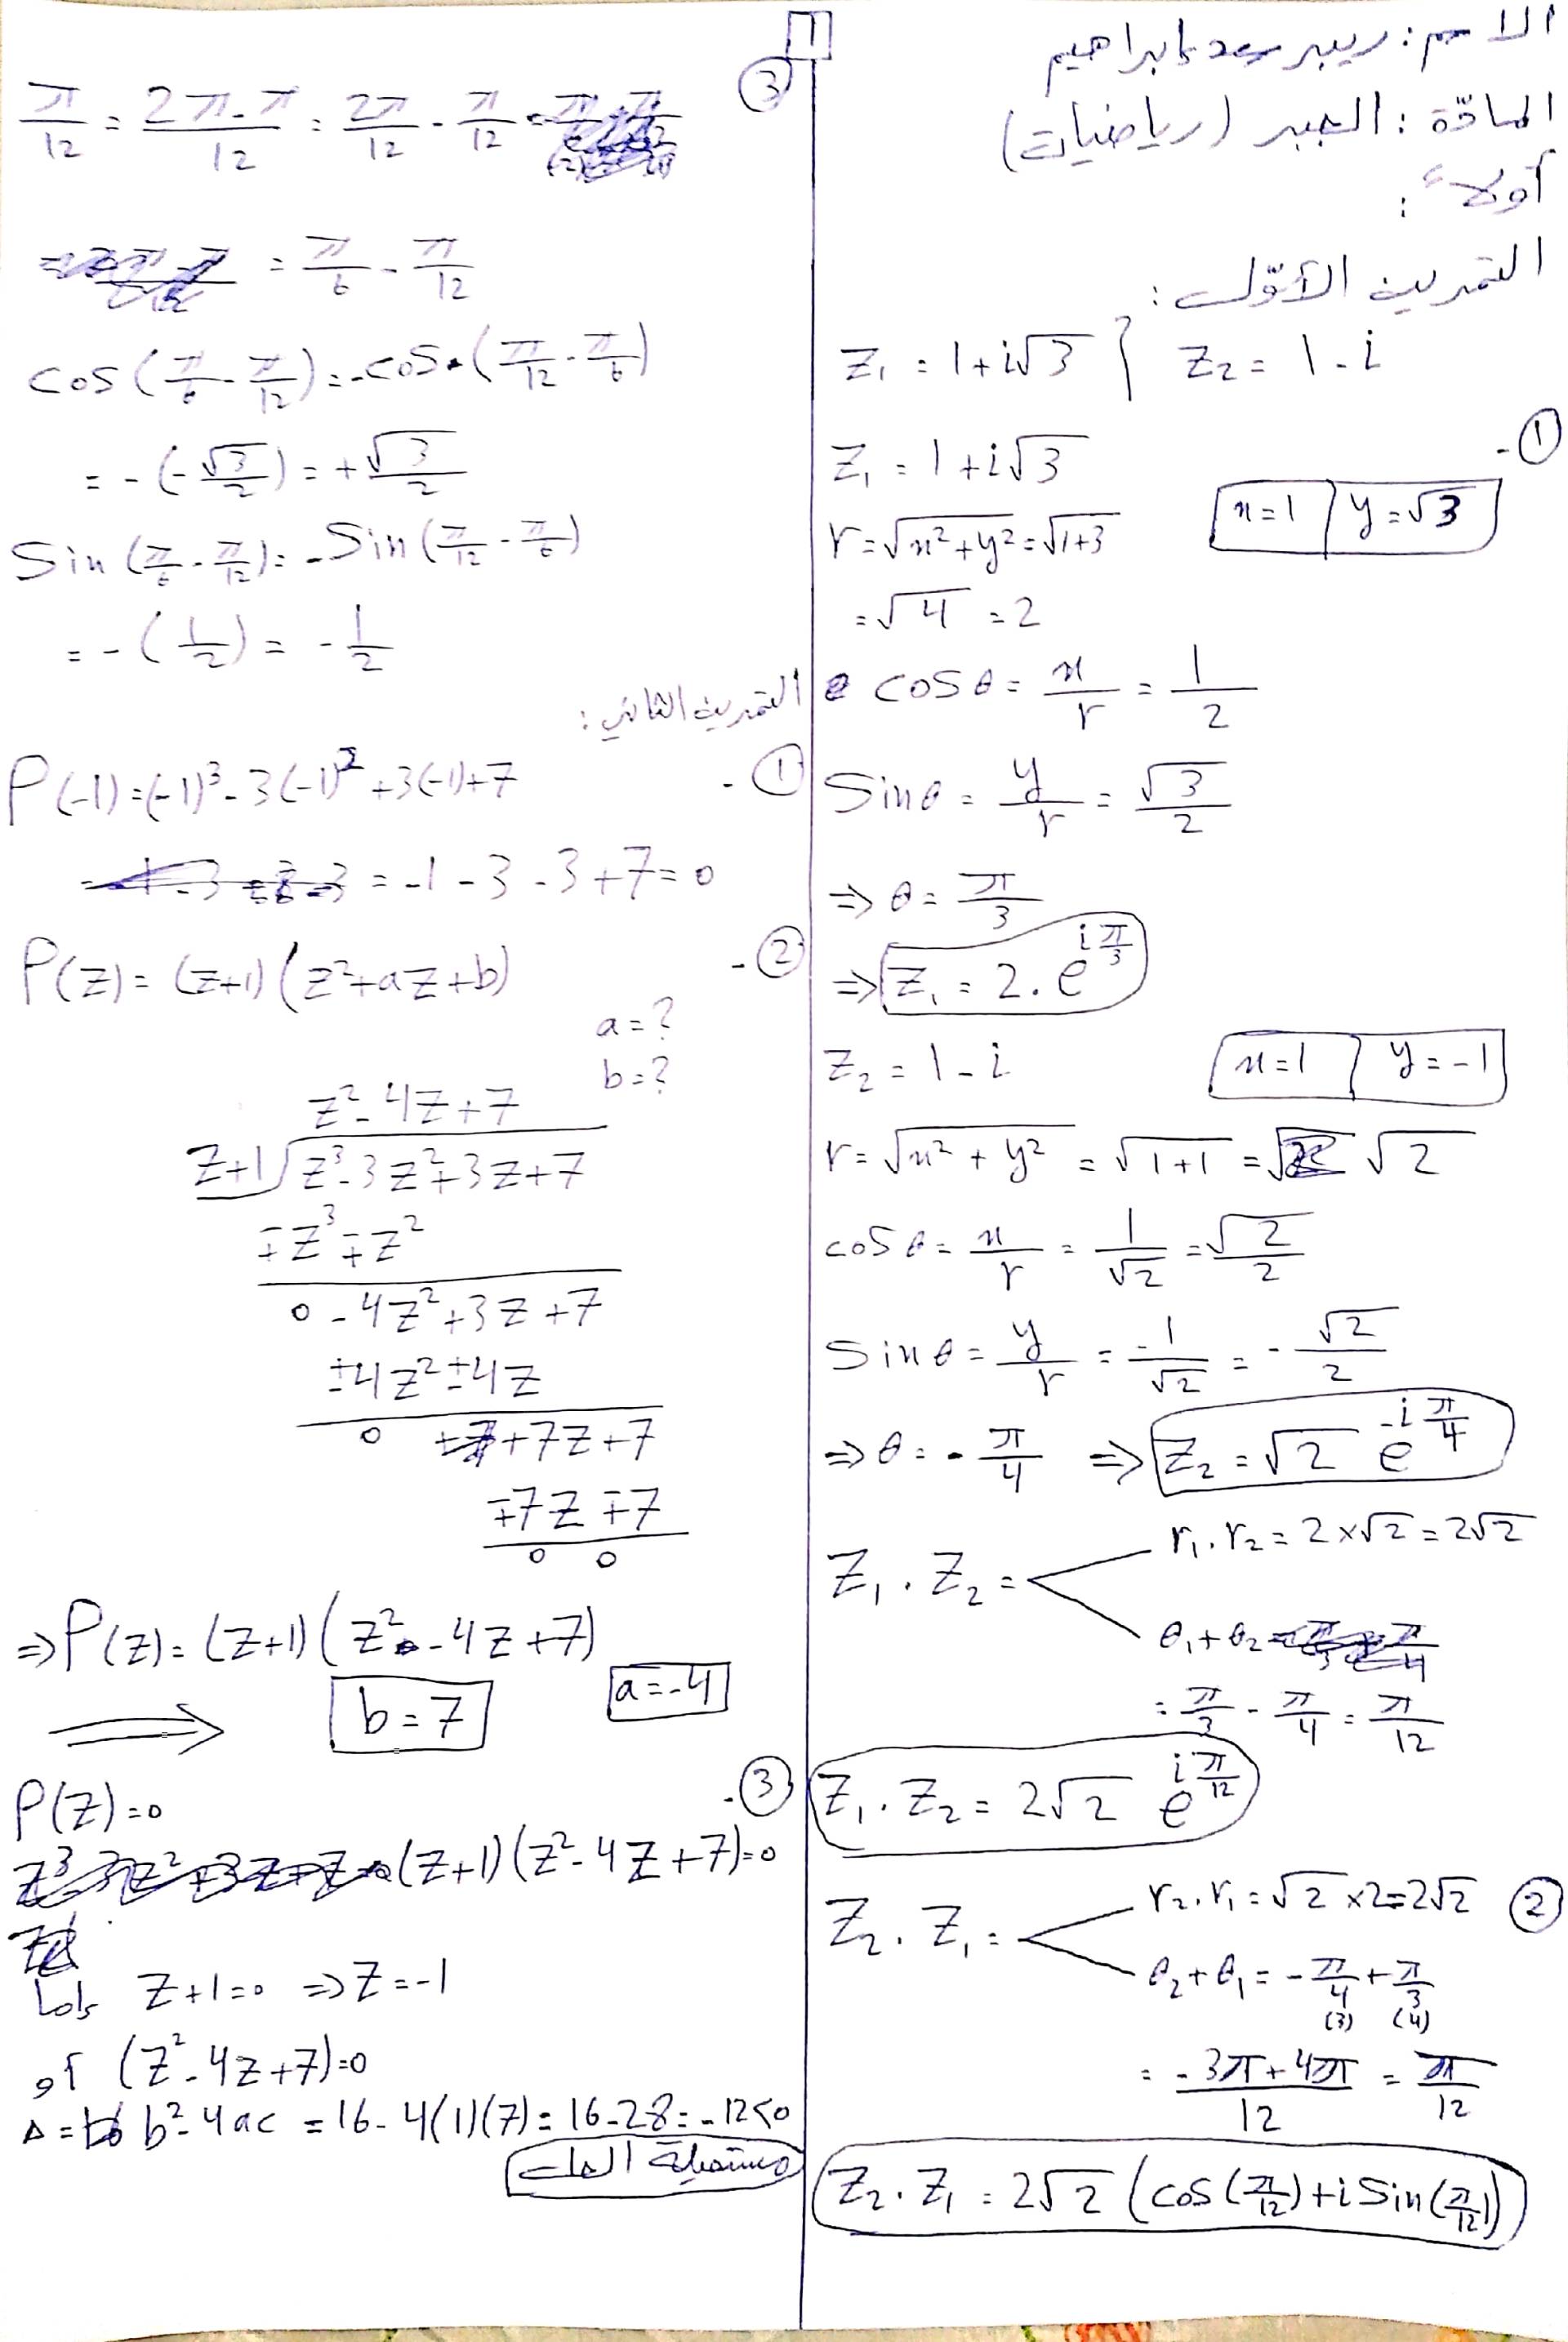 1
الاسم: ريبر سعد إبراهيم
المادّة: الجبر (رياضيات)
أولاً:
التمرين الأوّل:
Z₁ = 1+i√3 } Z₂ = 1-i
① -
Z₁ = 1+i√3
x=1 / y=√3
r=√x²+y² = √1+3
=√4 = 2
cosθ = x/r = 1/2
Sinθ = y/r = √3/2
⇒ θ = π/3
⇒ Z₁ = 2. e^(iπ/3)
Z₂ = 1-i
x=1 / y=-1
r=√x²+y² = √1+1 = √2
cosθ = x/r = 1/√2 = √2/2
Sinθ = y/r = -1/√2 = -√2/2
⇒ θ = -π/4 ⇒ Z₂ = √2 e^(-iπ/4)
Z₁.Z₂ =
r₁.r₂ = 2×√2 = 2√2
θ₁+θ₂
= π/3 - π/4 = π/12
Z₁.Z₂ = 2√2 e^(iπ/12)
②
Z₂.Z₁ =
r₂.r₁ = √2×2=2√2
θ₂+θ₁ = -π/4 + π/3
(3) (4)
= -3π+4π/12 = π/12
Z₂.Z₁ = 2√2 (cos(π/12)+i Sin(π/12))
③
π/12 = 2π-π/12 = 2π/12 - π/12
= π/6 - π/12
cos(π/6 - π/12) = -cos(π/12 - π/6)
= -(-√3/2) = +√3/2
Sin(π/6 - π/12) = -Sin(π/12 - π/6)
= -(1/2) = -1/2
التمرين الثاني:
① -
P(-1)=(-1)³-3(-1)²+3(-1)+7
= -1-3-3+7=0
② -
P(Z) = (Z+1)(Z²+aZ+b)
a=?
b=?
Z²-4Z+7
Z+1 Z³-3Z²+3Z+7
∓Z³∓Z²
0-4Z²+3Z+7
±4Z²±4Z
0 +7Z+7
∓7Z∓7
0 0
⇒P(Z)=(Z+1)(Z²-4Z+7)
⇒ b=7 a=-4
③ -
P(Z)=0
(Z+1)(Z²-4Z+7)=0
إما Z+1=0 ⇒ Z=-1
أو (Z²-4Z+7)=0
Δ = b²-4ac = 16-4(1)(7) = 16-28 = -12<0
مستحيلة الحل